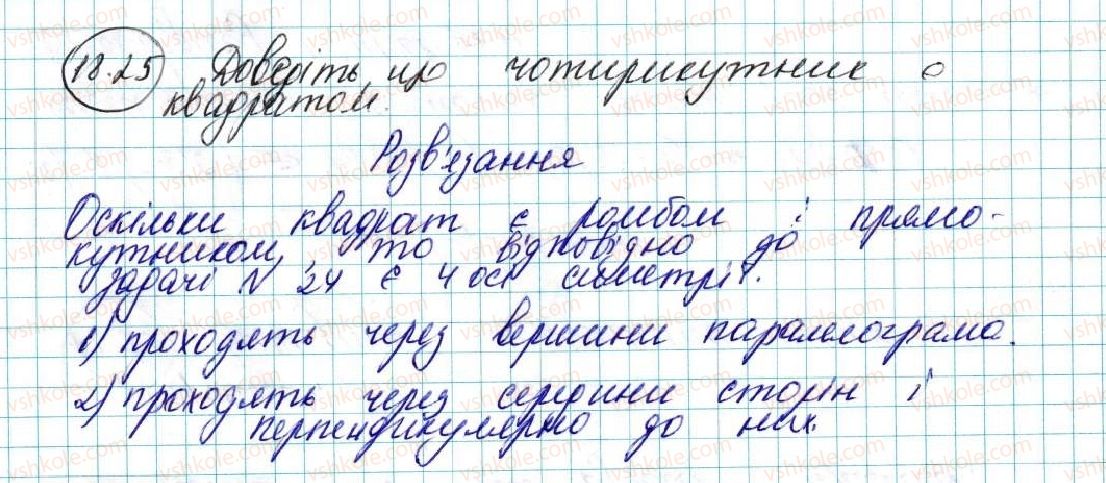 18.25 Доведіть, що чотирикутник є
квадратом.
Розв'язання
Оскільки квадрат є ромбом і прямо-
кутником, то відповідно до
задачі N 24 є 4 осі симетрії.
1) проходять через вершини паралелограма.
2) проходять через середини сторін і
перпендикулярно до них.